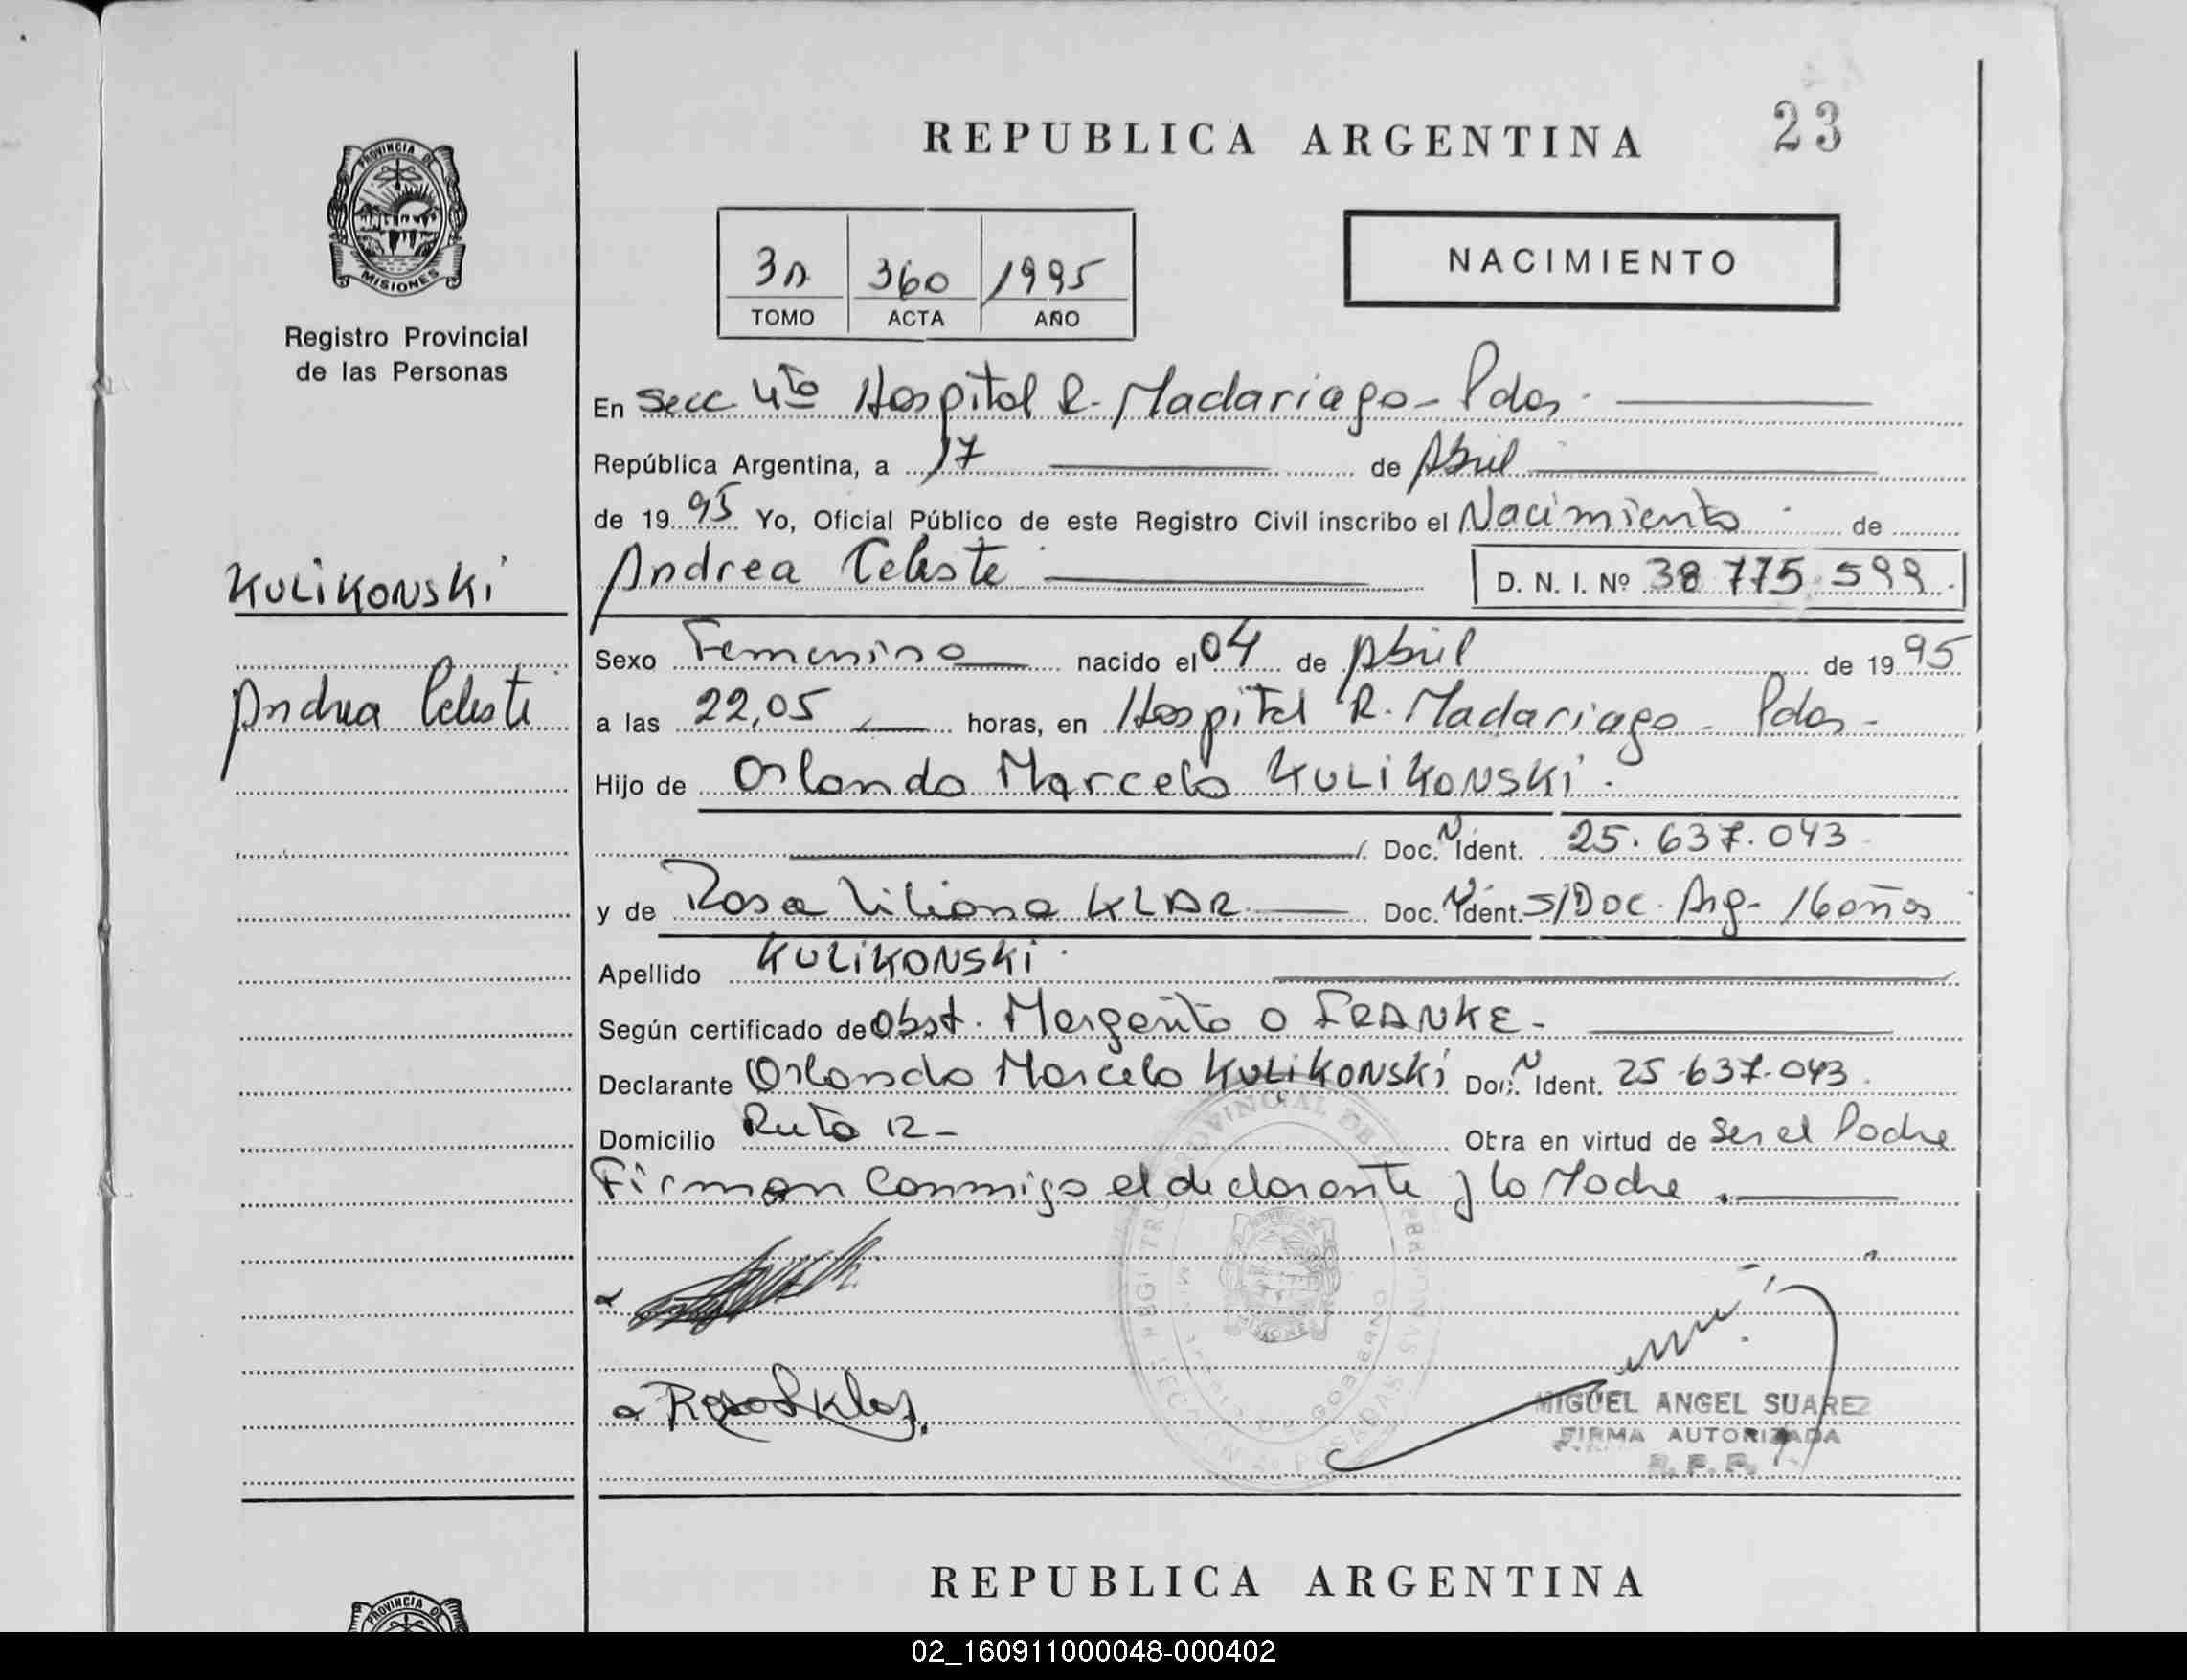 REPUBLICA ARGENTINA
23
PROVINCIA DE
MISIONES
Registro Provincial
de las Personas
3n 360 1995
TOMO ACTA AÑO
NACIMIENTO
En Secc 4ta Hospital R. Madariaga - Pdas.
República Argentina, a 17 de Abril
de 1995 Yo, Oficial Público de este Registro Civil inscribo el Nacimiento de
KULIKONSKI
Andrea Celeste D. N. I. Nº 38 775 599
Sexo Femenino nacido el 04 de Abril de 1995
Andrea Celeste
a las 22,05 horas, en Hospital R. Madariaga - Pdas -
Hijo de Orlando Marcelo KULIKONSKI.
Doc. N Ident. 25.637.043
y de Rosa Liliana KLAR Doc. N Ident. S/Doc. Arg - 16 años
Apellido KULIKONSKI.
Según certificado de Obst. Margarita O FRANKE -
Declarante Orlando Marcelo KULIKONSKI Doc. N Ident. 25.637.043.
Domicilio Ruta 12 - Obra en virtud de Ser el Padre
Firman Conmigo el declarante y la Madre.
Rosa L Klar.
MIGUEL ANGEL SUAREZ
FIRMA AUTORIZADA
R. P. P.
REPUBLICA ARGENTINA
PROVINCIA DE
02_160911000048-000402